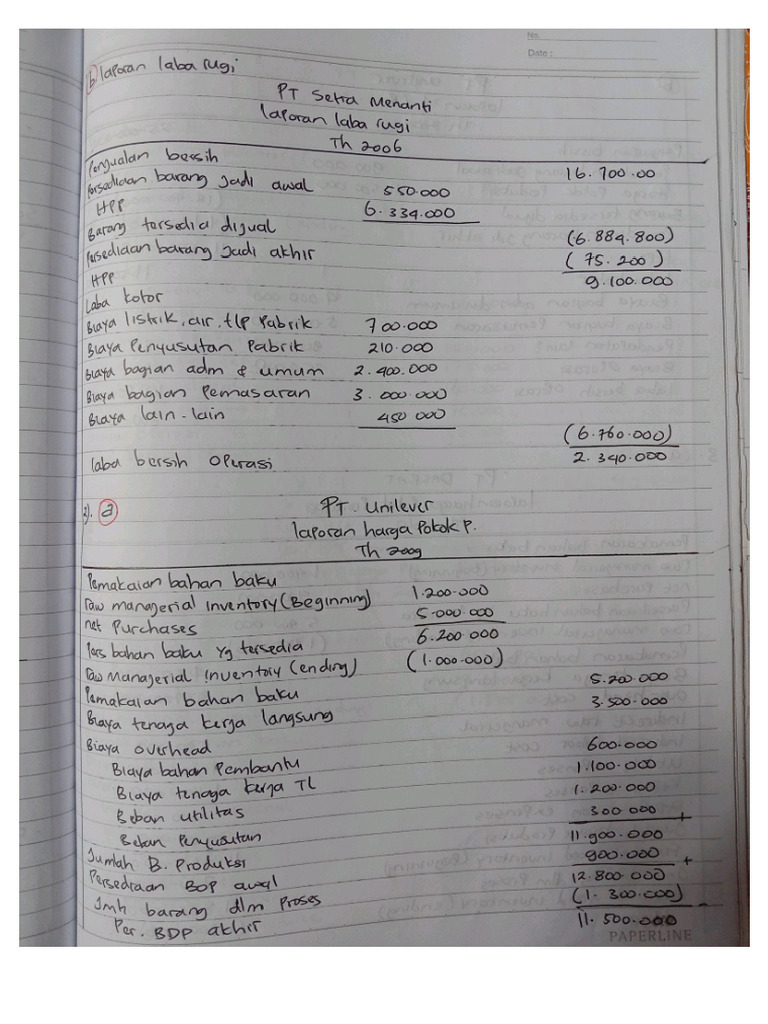 No.
Date :
b) laporan laba rugi
PT Setra Menanti
laporan laba rugi
Th 2006
Penjualan bersih 16.700.00
Persediaan barang jadi awal 550.000
HPP 6.334.000
Barang tersedia dijual (6.884.800)
Persediaan barang jadi akhir (75.200)
HPP 9.100.000
Laba kotor
Biaya listrik, air, tlp Pabrik 700.000
Biaya Penyusutan Pabrik 210.000
Biaya bagian adm & umum 2.400.000
Biaya bagian Pemasaran 3.000.000
Biaya lain-lain 450 000
(6.760.000)
laba bersih operasi 2.340.000
a PT. Unilever
laporan harga Pokok P.
Th 2009
Pemakaian bahan baku
raw managerial inventory (Beginning) 1.200.000
net Purchases 5.000.000
Pers bahan baku yg tersedia 6.200.000
raw Managerial inventory (ending) (1.000.000)
Pemakaian bahan baku 5.200.000
Biaya tenaga kerja langsung 3.500.000
Biaya overhead
Biaya bahan Pembantu 600.000
Biaya tenaga kerja TL 1.100.000
Beban utilitas 1.200.000
Beban Penyusutan 300 000 +
Jumlah B. Produksi 11.900.000
Persediaan BDP awal 900.000 +
Jmh barang dlm Proses 12.800.000
Per. BDP akhir (1.300.000)
11.500.000
PAPERLINE